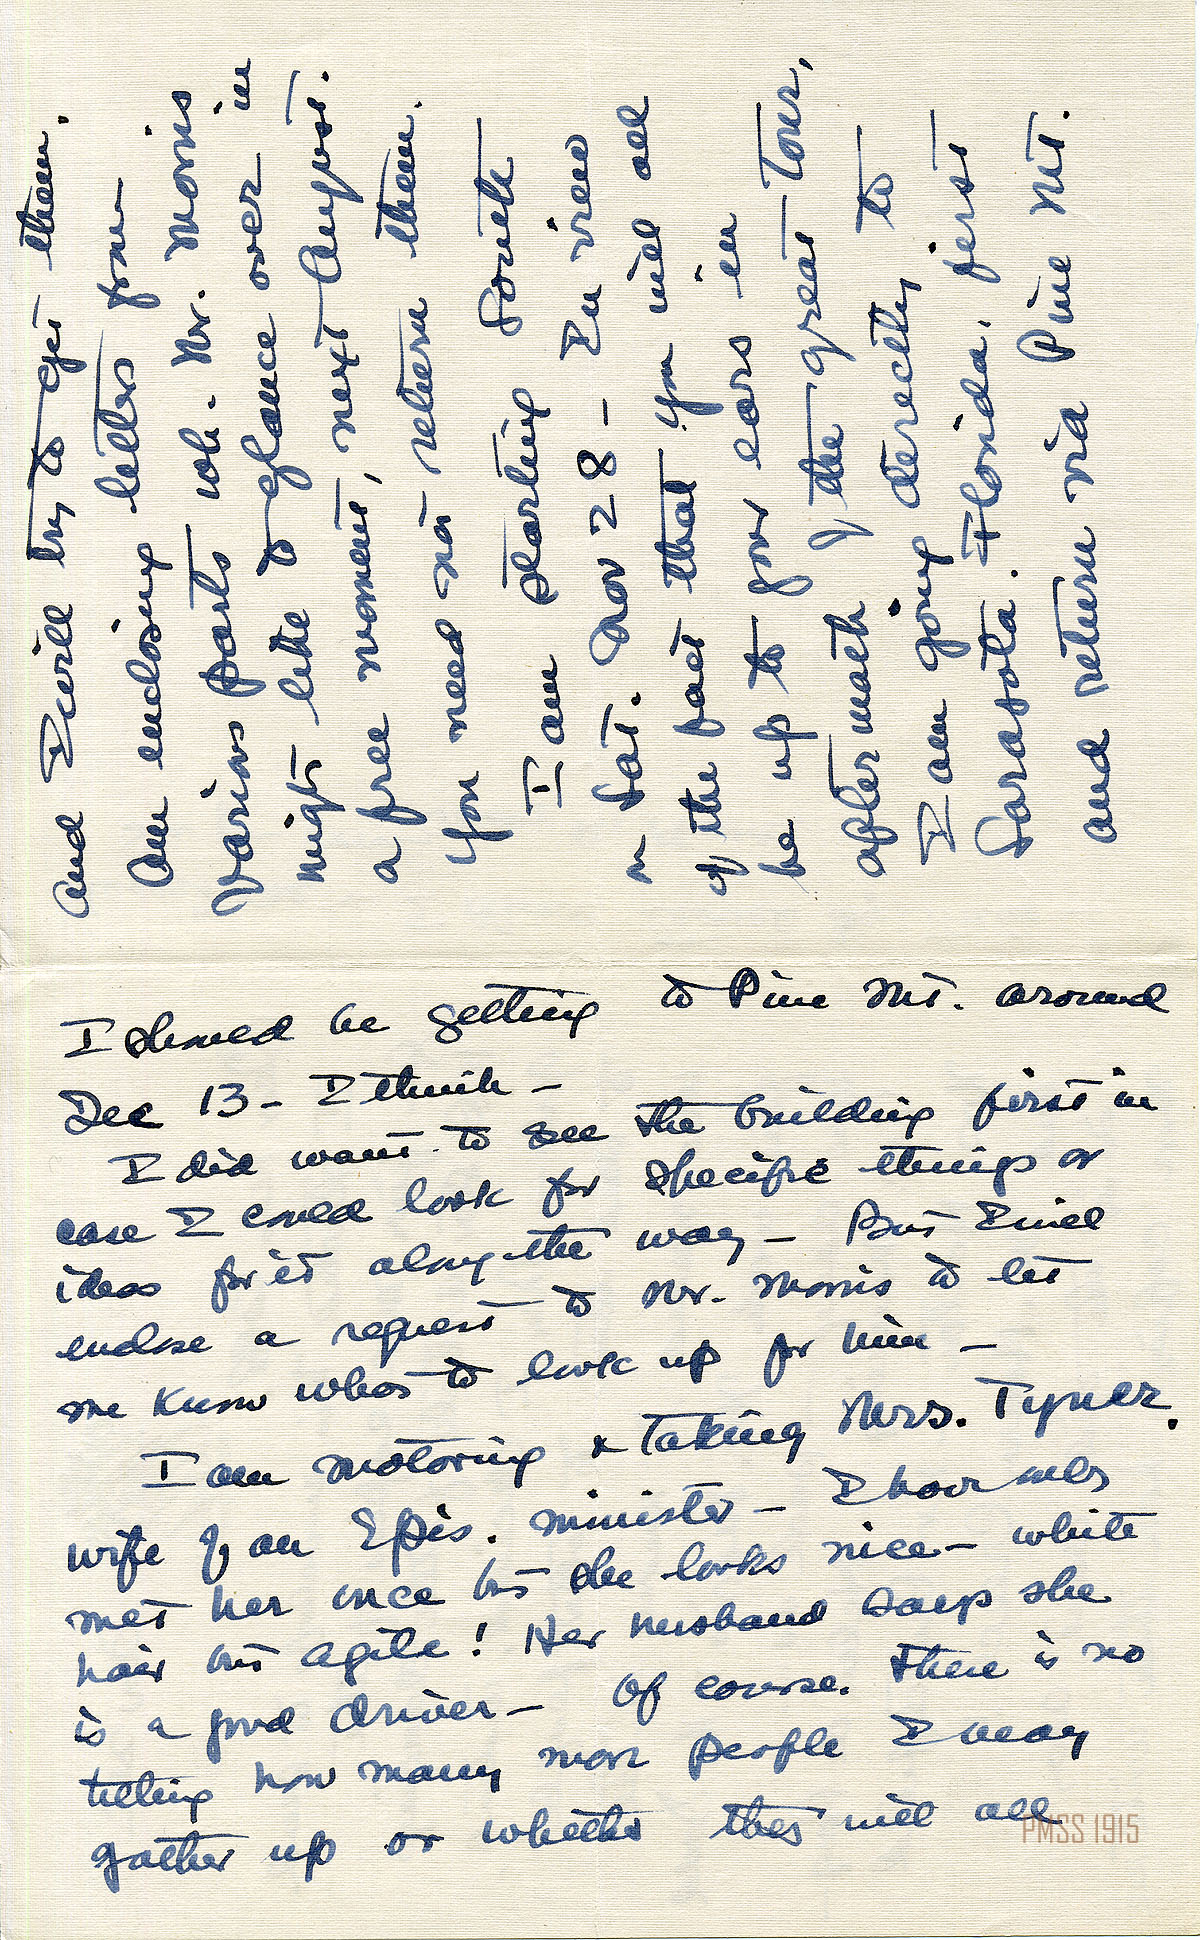 and I will try to get them.
Am enclosing letters from
various parts wh. Mr. Morris
might like to glance over in
a free moment, next August.
You need not return them.
I am starting South
on Sat. Nov 28 - In view
of the fact that you will all
be up to your ears in
aftermath of the great Tour,
I am going directly to
Sarasota. Florida. first
and return via Pine Mt.
I should be getting to Pine Mt. around
Dec 13 - I think -
I did want to see the building first in
case I could look for specific things or
ideas for it along the way - But I will
enclose a request to Mr. Morris to let
me know what to look up for him -
I am motoring & taking Mrs. Tyner.
wife of an Epis. minister - I have only
met her once but she looks nice - white
hair but agile! Her husband says she
is a good driver - Of course. there is no
telling how many more people I may
gather up or whether they will all
PMSS 1915